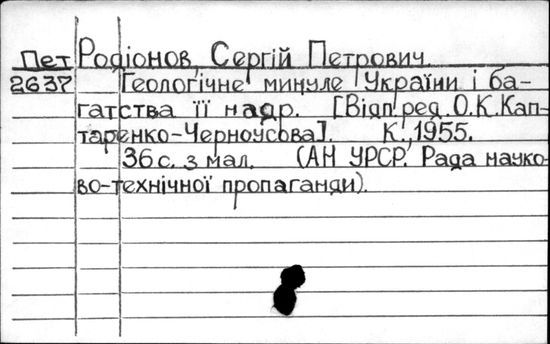 Пет Родіонов, Сергій Петрович.
2637 Геологічне минуле України і ба-
гатства її надр. [Відп.ред.О.К.Кап-
таренко-Черноусова]. К.,1955.
36с. з мал. (АН УРСР. Рада науко-
во-технічної пропаганди).